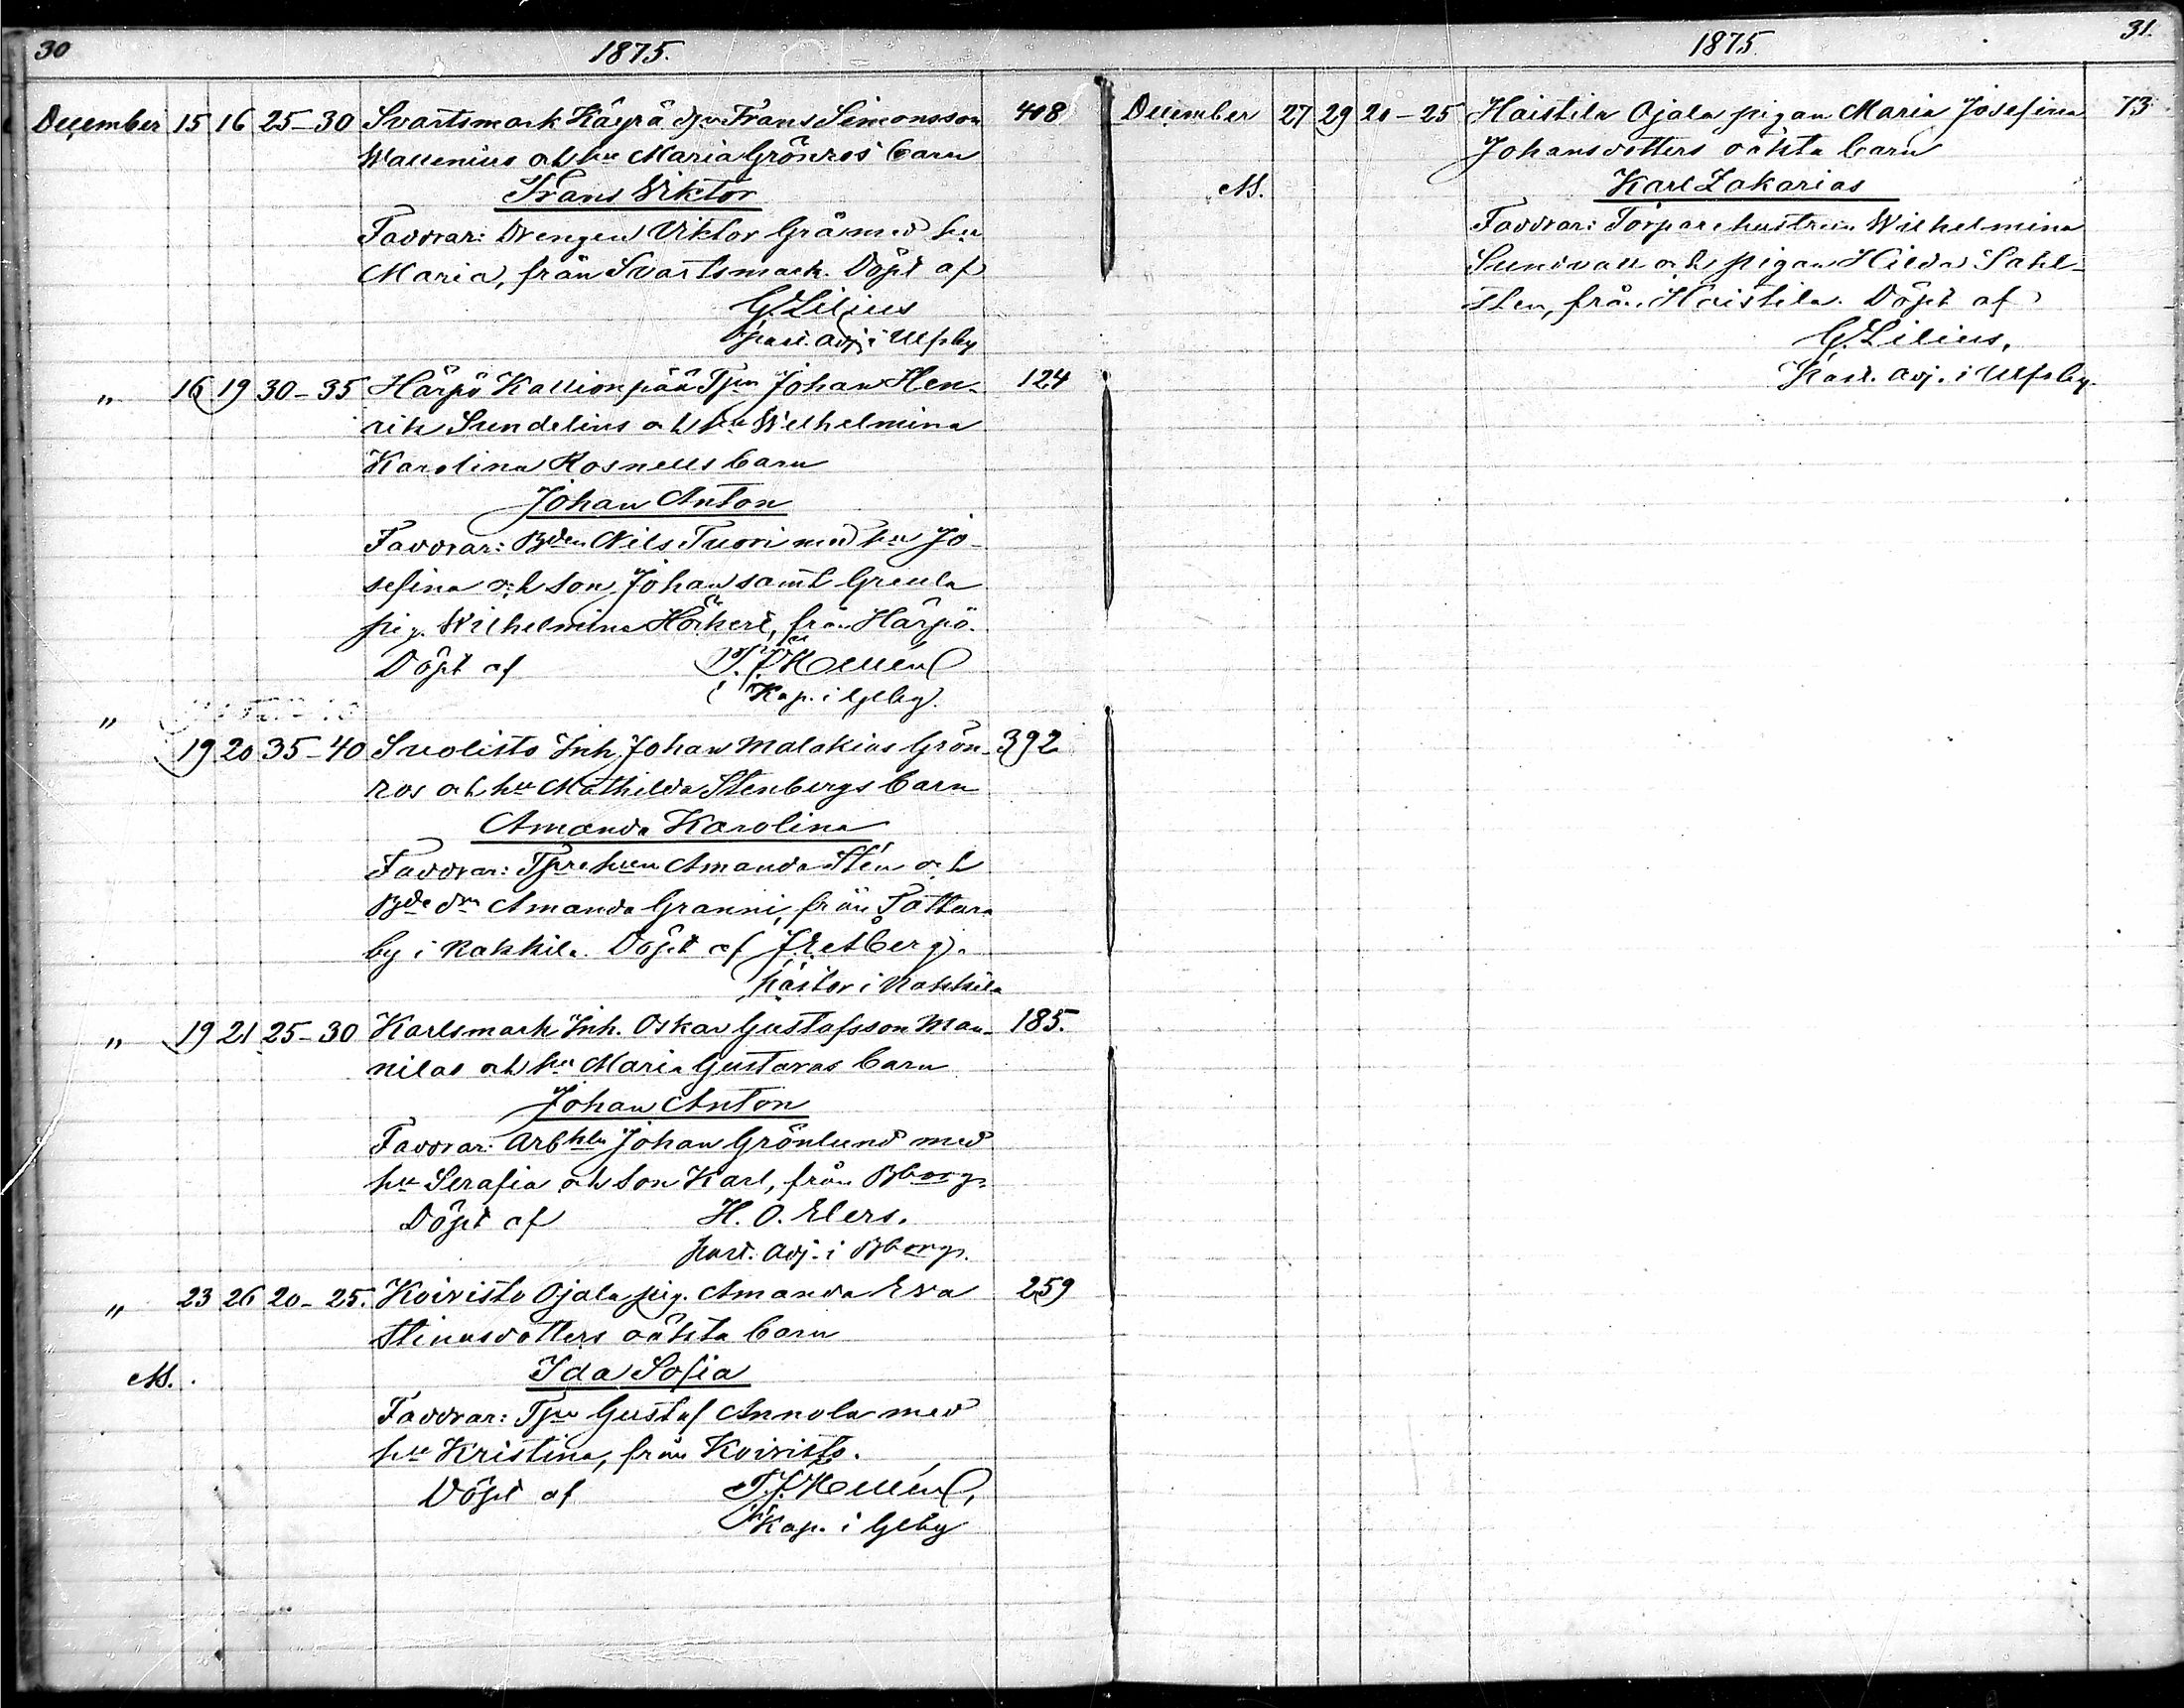 30 1875.
December 15 16 25-30 Svartsmark Käyrä Frans Simonsson 408
Wallenius och hu Maria Grönros barn
Frans Viktor
Faddrar: Drengen Viktor Grå med hu
Maria, från Svartsmark. Döpt af
G Lilius
past. adj. i Ulfsby
" 16 19 30-35 Härpö Kallionpää Tpn Johan Hen- 124
rik Sundelius och hu Wilhelmina
Karolina Rosnells barn
Johan Anton
Faddrar: Bden Nils Tuori med hu Jo-
sefina och son Johan samt Greula
pig. Wilhelmina Hörkert, från Härpö.
Döpt af Hellén
Kap. i Gleby.
"
19 20 35-40 Suolisto Inh. Johan Malakias Grön- 392
ros och hu Mathilda Stenbergs barn
Amanda Karolina
Faddrar: Tprehun Amanda Stén och
Bde dn Amanda Granni, från Tattara
by i Nakkila. Döpt af
pastor i Nakkila
" 19 21 25-30 Karlsmark Inh. Oskar Gustafsson Man- 185.
nilas och hu Maria Gustavas barn
Johan Anton
Faddrar: Arbkln Johan Grönlund med
hu Serafia och son Karl, från Bborg.
Döpt af H. O. Elers.
past. adj. i Bborg.
" 23 26 20-25. Koivisto Ojala pig. Amanda Eva 259
Stinasdotters oäkta barn
M. Ida Sofia
Faddrar: Tpn Gustaf Annola med
hu Kristina, från Koivisto.
Döpt af Hellén,
Kap. i Gleby
1875. 31.
December 27 29 20-25 Haistila Ojala pigan Maria Josefina 73
Johansdotters oäkta barn
M. Karl Zakarias
Faddrar: Torparehustrun Wilhelmina
Sundvall och pigan Hilda Sahl-
sten, från Haistila. Döpt af
G Lilius,
Past. adj. i Ulfsby.